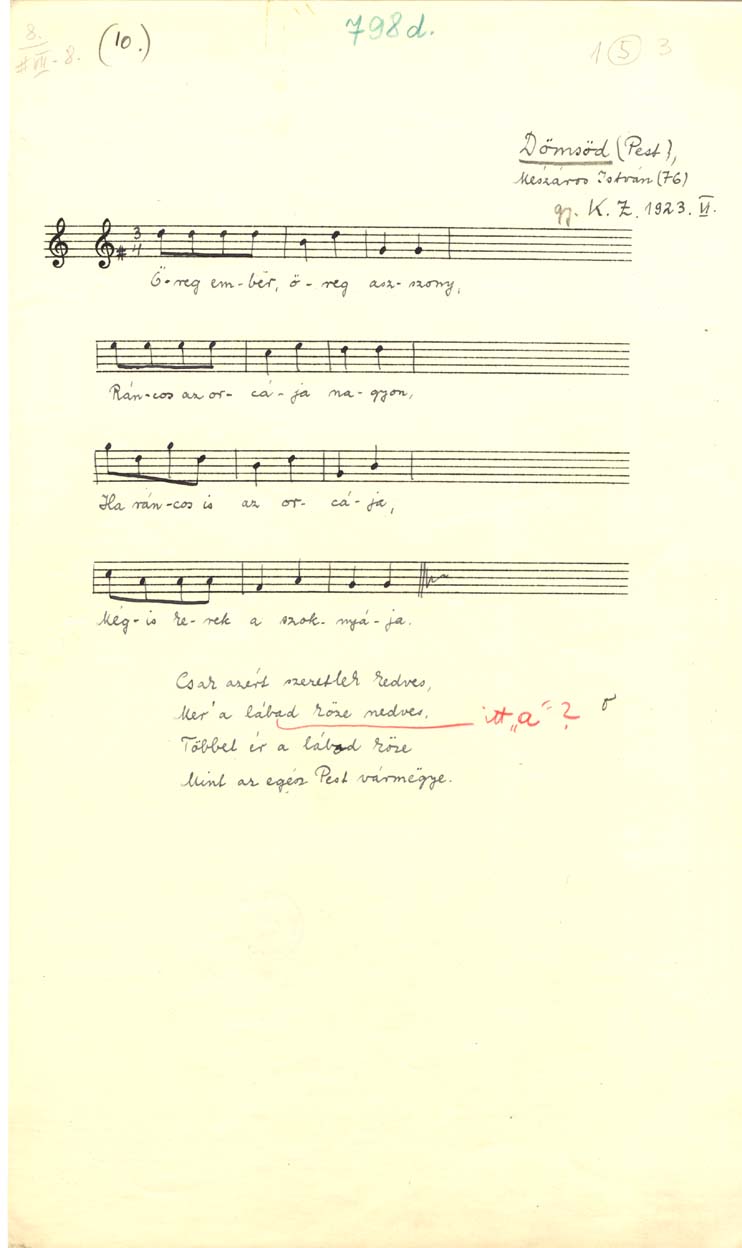 8.
VII - 8.
(10.)
798d.
1 (5) 3
Dömsöd (Pest),
Mészáros István (76)
gy. K. Z. 1923. VI.
3
4
Ö-reg em-bër, ö-reg asz-szony,
Rán-cos az or-cá-ja na-gyon,
Ha rán-cos is az or-cá-ja,
Még-is ke-rek a szok-nyá-ja.
Csak azért szeretlek kedves,
Mer' a lábad köze nedves, itt „a"? σ
Többet ér a lábad köze
Mint az egész Pest vármëgye.